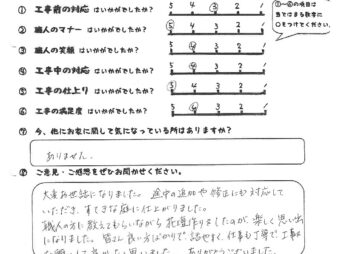 ① 工事前の対応 はいかがでしたか? 5 4 ③ 2 1
② 職人のマナー はいかがでしたか? ⑤ 4 3 2 1
③ 職人の笑顔 はいかがでしたか? 5 ④ 3 2 1
④ 工事中の対応 はいかがでしたか? 5 ④ 3 2 1
⑤ 工事の仕上り はいかがでしたか? ⑤ 4 3 2 1
⑥ 工事の満足度 はいかがでしたか? 5 ④ 3 2 1
①〜⑥の項目は
当てはまる数字に
○をつけてください。
⑦ 今、他にお家に関して気になっている所はありますか?
ありません.
⑧ ご意見・ご感想をぜひお聞かせください。
大変お世話になりました。途中の追加や修正にも対応して
いただき、すてきな庭に仕上がりました。
職人の方に教えてもらいながら花壇作りましたのが、楽しく思い出
になりました。皆さん良い方ばかりで話やすく、仕事も丁寧で工事
ありがとうございました。